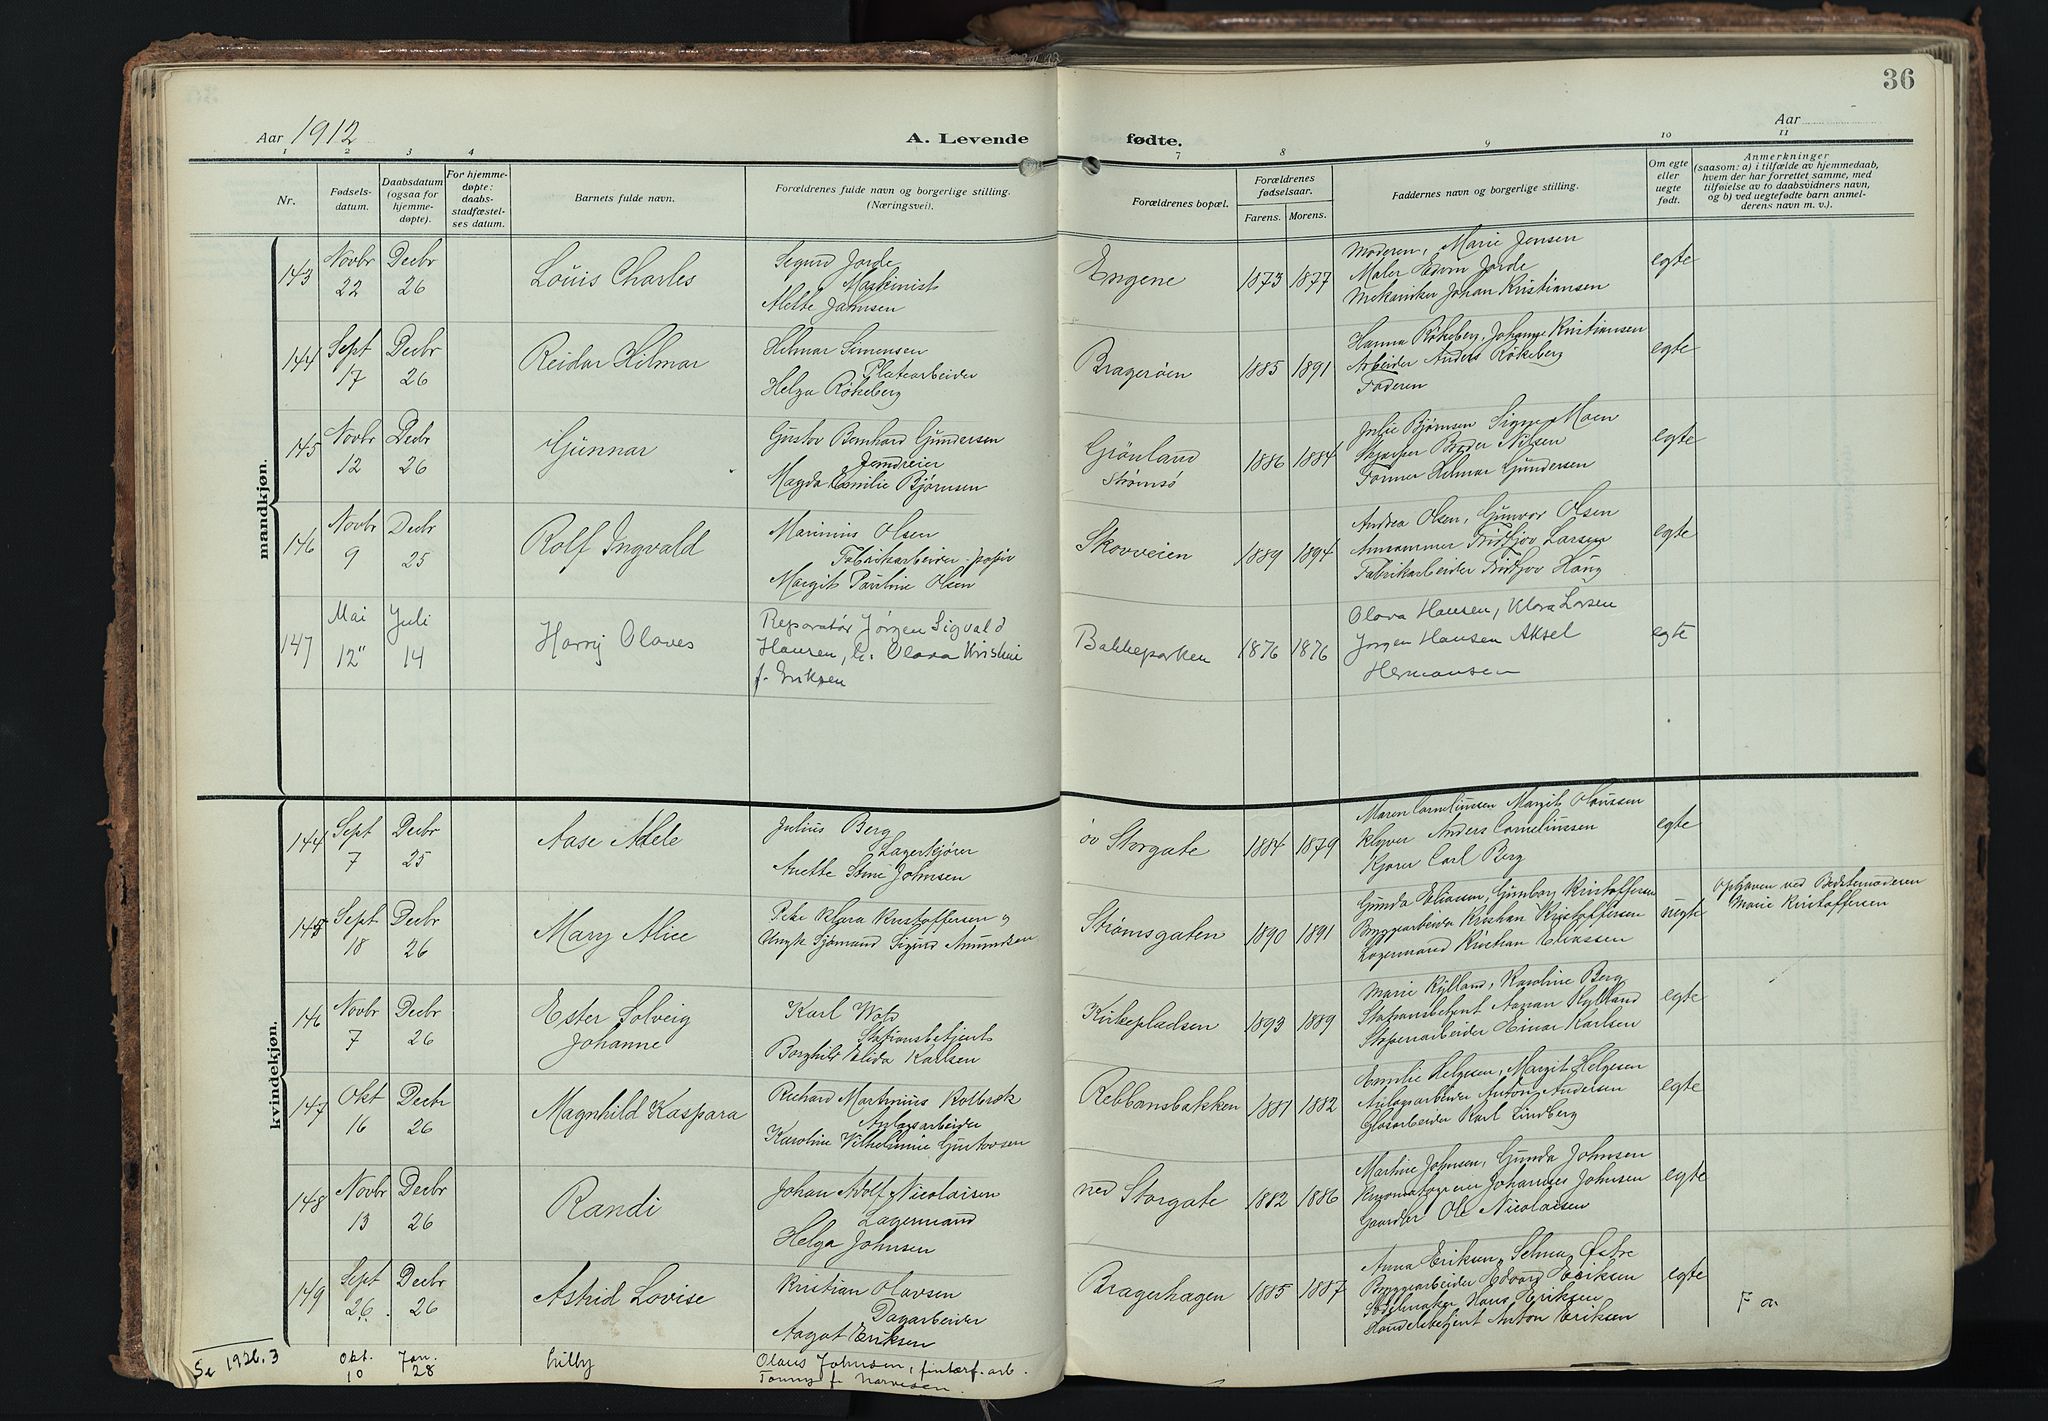 36
Aar 1912
A. Levende fødte.
Aar
1 2 3 4 7 8 9 10 11
Nr.
Fødsels-
datum.
Daabsdatum
(ogsaa for
hjemme-
døpte).
For hjemme-
døpte:
daabs-
stadfæstel-
ses datum.
Barnets fulde navn.
Forældrenes fulde navn og borgerlige stilling.
(Næringsvei).
Forældrenes bopæl.
Forældrenes
fødselsaar.
Farens. Morens.
Faddernes navn og borgerlige stilling.
Om egte
eller
uegte
født.
Anmerkninger
(saasom: a) i tilfælde av hjemmedaab,
hvem der har forrettet samme, med
tilføielse av to daabsvidners navn,
og b) ved uegtefødte barn anmel-
derens navn m. v.).
mandkjøn.
143 Novbr 22 Decbr 26
Louis Charles
Sigurd Jorde
Maskinist
Mette Jahnsen
Engene 1873 1877
Moderen, Marie Jensen
Maler Edvin Jorde
Mekaniker Johan Kristiansen
egte
144 Sept 17 Decbr 26
Reidar Hilmar
Hilmar Simensen
Platearbeider
Helga Røkeberg
Bragerøen 1885 1891
Hanna Røkeberg, Johanne Kristiansen
Arbeider Anders Røkeberg
Faderen
egte
145 Novbr 12 Decbr 26
Gunnar
Gustav Bernhard Gundersen
Jerndreier
Magda Emilie Bjørnsen
Grønland
Strømsø
1886 1884
Julie Bjørnsen Signe Moen
Nilsen
Former Hilmar Gundersen
egte
146 Novbr 9 Decbr 25
Rolf Ingvald
Marinius Olsen
Fabrikarbeider. papir
Margit Pauline Olsen
Skovveien 1889 1894
Andrea Olsen, Gunvor Olsen
Fridtjov Larsen
Fabrikarbeider Fridtjov Haug
egte
147 Mai 12" Juli 14
Harry Olaves
Reparatør Jørgen Sigvald
Hansen, h. Olava Kristine
f. Eriksen
Bakkeparken 1876 1876
Olava Hansen, Klara Larsen
Jørgen Hansen Aksel
Hermansen
egte
kvindekjøn.
144 Sept 7 Decbr 25
Aase Adele
Julius Berg
Lagerkjører
Anette Stine Johnsen
øv Storgate 1884 1879
Maren Corneliussen Margit Olaussen
Klyver Anders Corneliussen
Kjører Carl Berg
egte
145 Sept 18 Decbr 26
Mary Alice
Pike Klara Kristoffersen og
Ungk Sjømand Sigurd Amundsen
Strømsgaten 1890 1891
Gunda Eliassen, Gunborg Kristoffersen
Bryggearbeider Kristian Kristoffersen
Lagermand Kristian Eliassen
uegte
Opgaven ved Bedstemoderen
Marie Kristoffersen
146 Novbr 7 Decbr 26
Ester Solveig
Johanne
Karl Wold
Stationsbetjent
Borghild Elida Karlsen
Kirkepladsen 1893 1889
Marie Kylland, Karoline Berg
Stationsbetjent Kylland
Einar Karlsen
egte
147 Okt 16 Decbr 26
Magnhild Kaspara
Richard Martinius Kolbræk
Anlægsarbeider
Karoline Vilhelmine Gustavsen
Rebbansbakken 1881 1882
Emilie Helgesen, Margit Helgesen
Anlægsarbeider Anton Andersen
Glasarbeider Karl Lindberg
egte
148 Novbr 13 Decbr 26
Randi
Johan Adolf Nicolaisen
Lagermand
Helga Johnsen
ned Storgate 1882 1886
Martine Johnsen, Gunda Johnsen
Johannes Johnsen
Ole Nicolaisen
egte
149 Sept 26. Decbr 26
Astrid Lovise
Kristian Olavsen
Dagarbeider
Aagot Eriksen
Bragerhagen 1885 1887
Anna Eriksen, Selma Østre
Bryggearbeider Edvard Eriksen
Sadelmaker Hans Eriksen
Handelsbetjent Anton Eriksen
egte
F a.
Se 1926.3 Okt. 10 Jan. 28
Lilly
Olaus Johnsen, arb.
Tonny f. Narvesen.